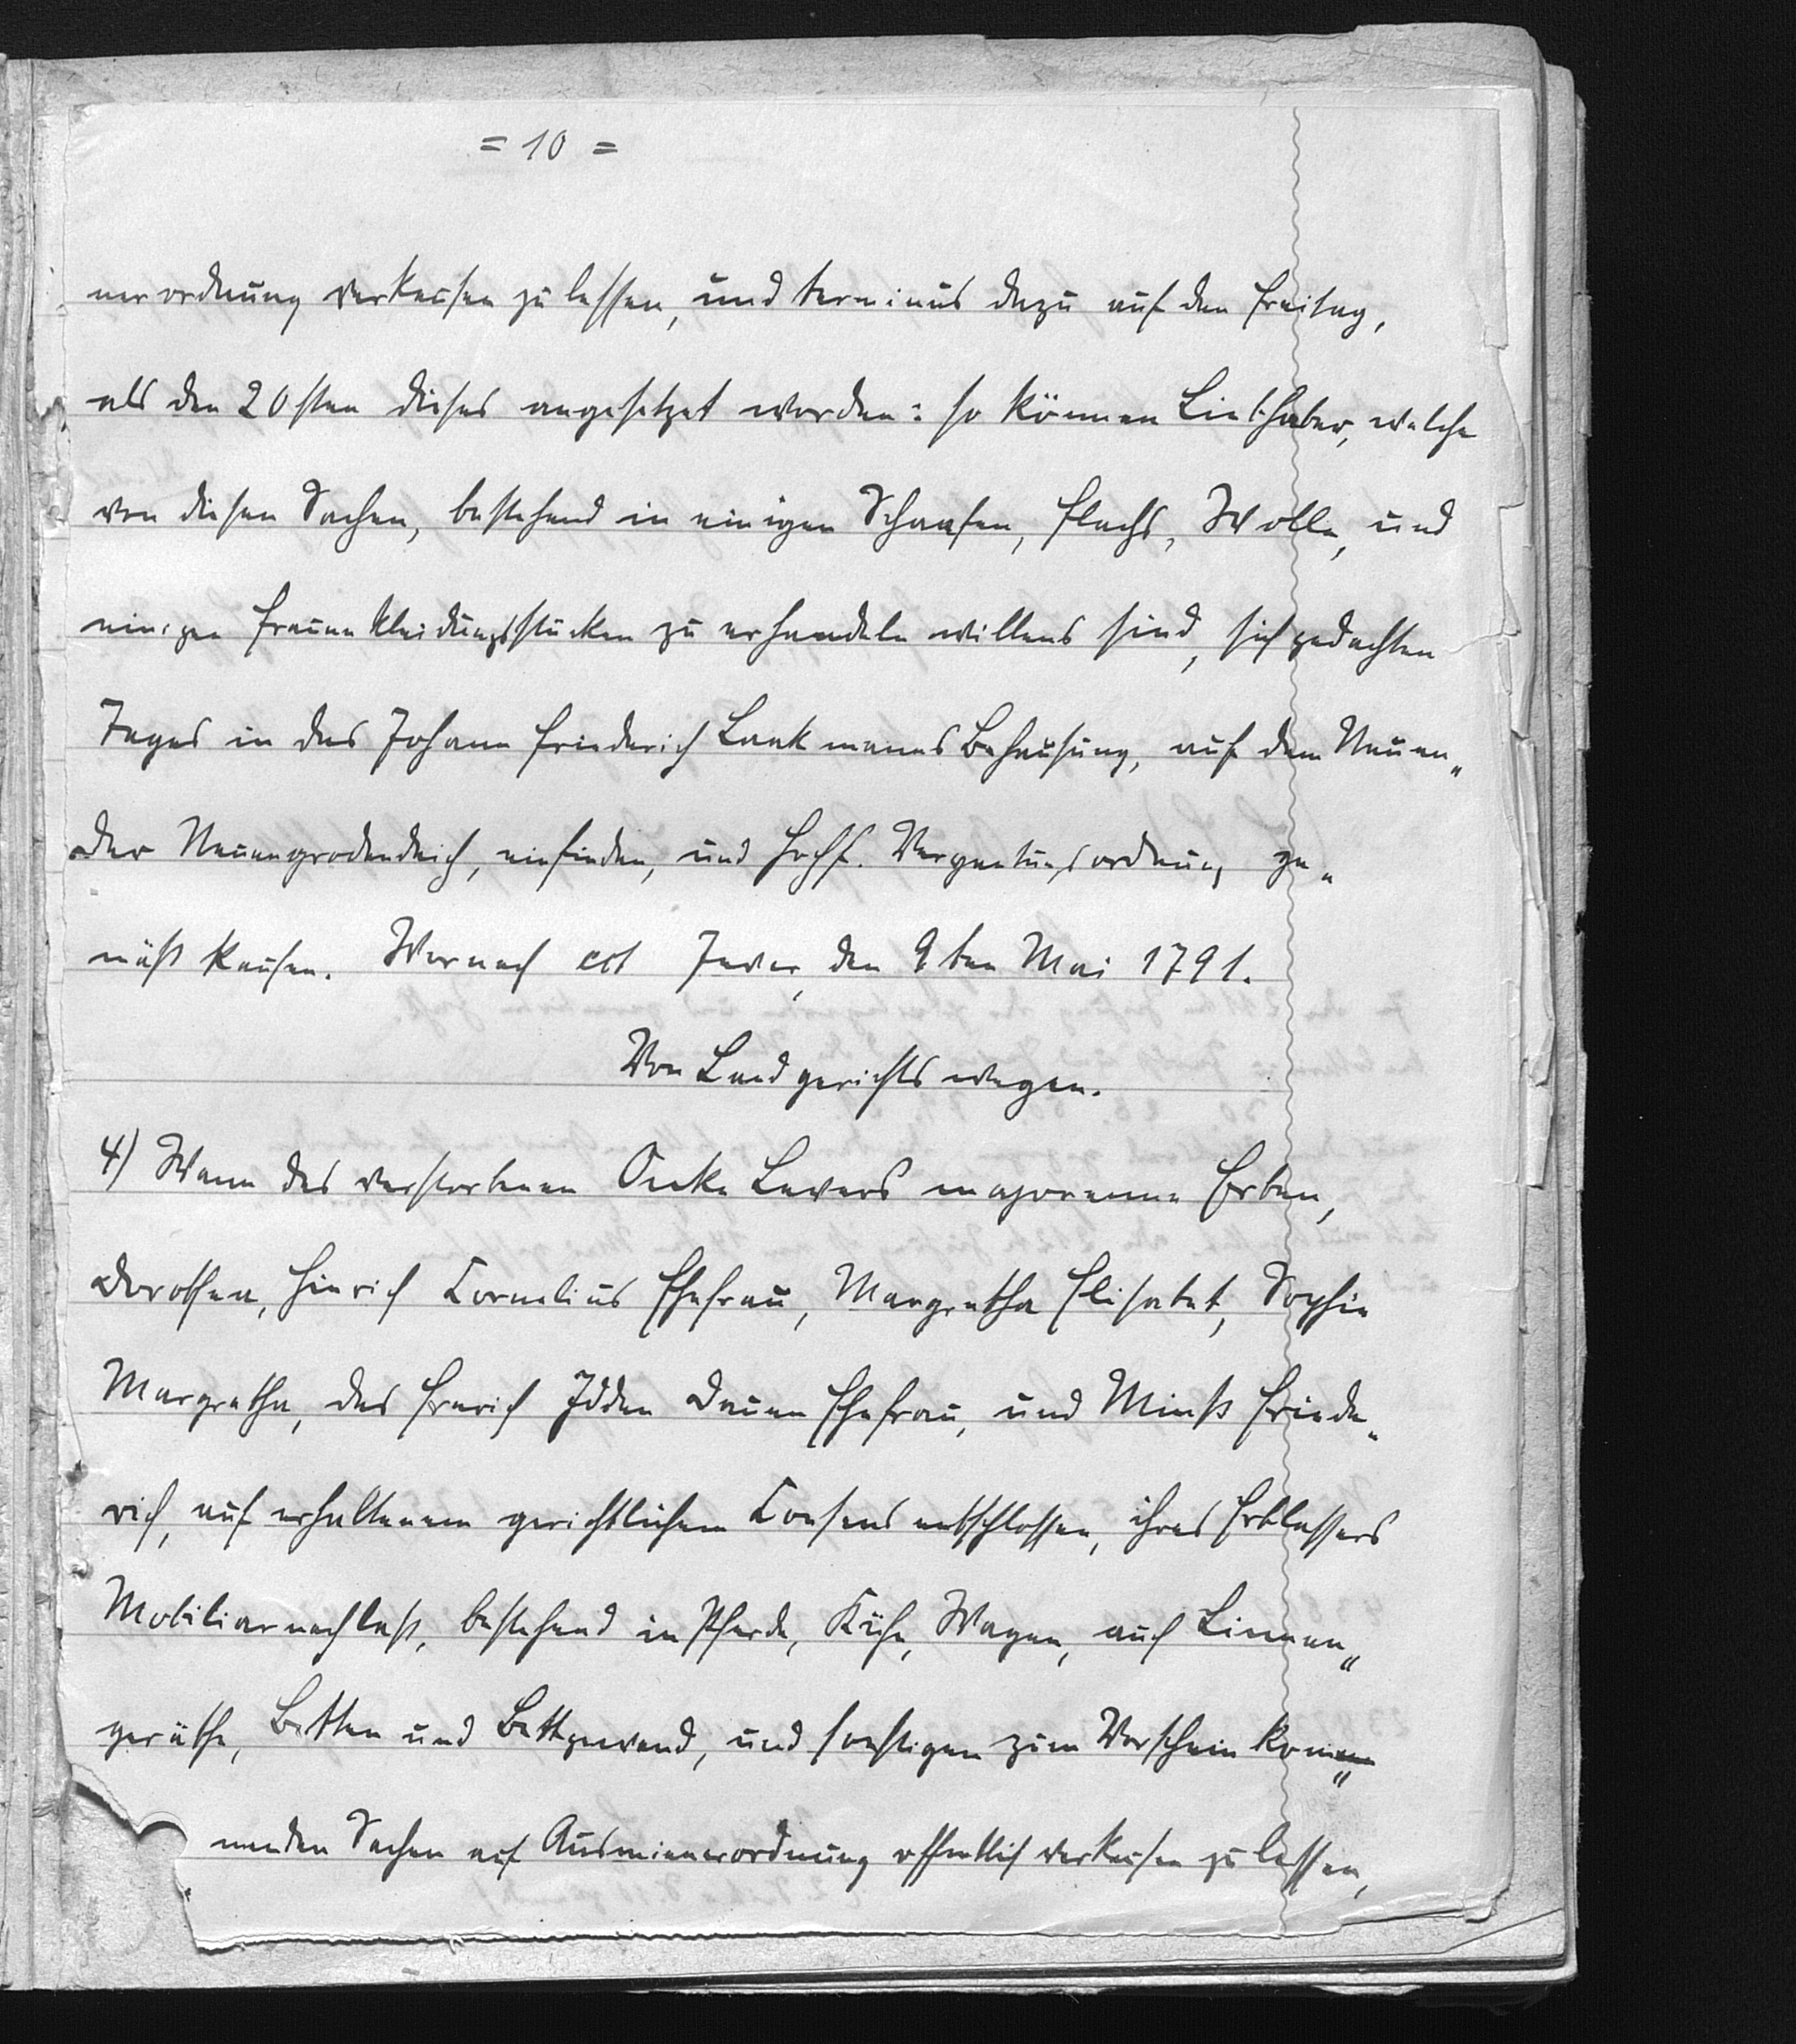 = 10 =
nerordnung verkaufen zu lassen, und terminus dazu auf den Freitag,
als den 20sten dieses angesetzet worden: so können Liebhaber, welche
von diesen Sachen, bestehend in einigen Schaafen, Flachs, Wolle, und
einigen Frauenkleidungsstücken zu erhandeln willens sind, sich gedachten
Tages in des Johann Friederich Laakmanns Behausung, auf dem Neuen„
der Neuengrodendeich, einfinden, und Hochf. Vergantungsordnung ge„
mäß kaufen. Wornach cct Jever, den 9ten Mai 1791.
Von Landgerichts wegen.
4) Wann des verstorbenen Onke Lavers majorenne Erben,
Dorothea, Hinrich Cornelius Ehefrau, Margretha Elisabet, Sophie
Margretha, des Frerich Idden Dauen Ehefrau, und Minß Friede„
rich, auf erhaltenem gerichtlichem Consens entschlossen, ihres Erblassers
Mobiliarnachlaß, bestehend in Pferde, Kühe, Wagen, auch Linnen„
geräthe, Betten und Bettgewand, und sonstigen zum Vorschein kom„
menden Sachen auf Ausmienerordnung offentlich verkaufen zu lassen,